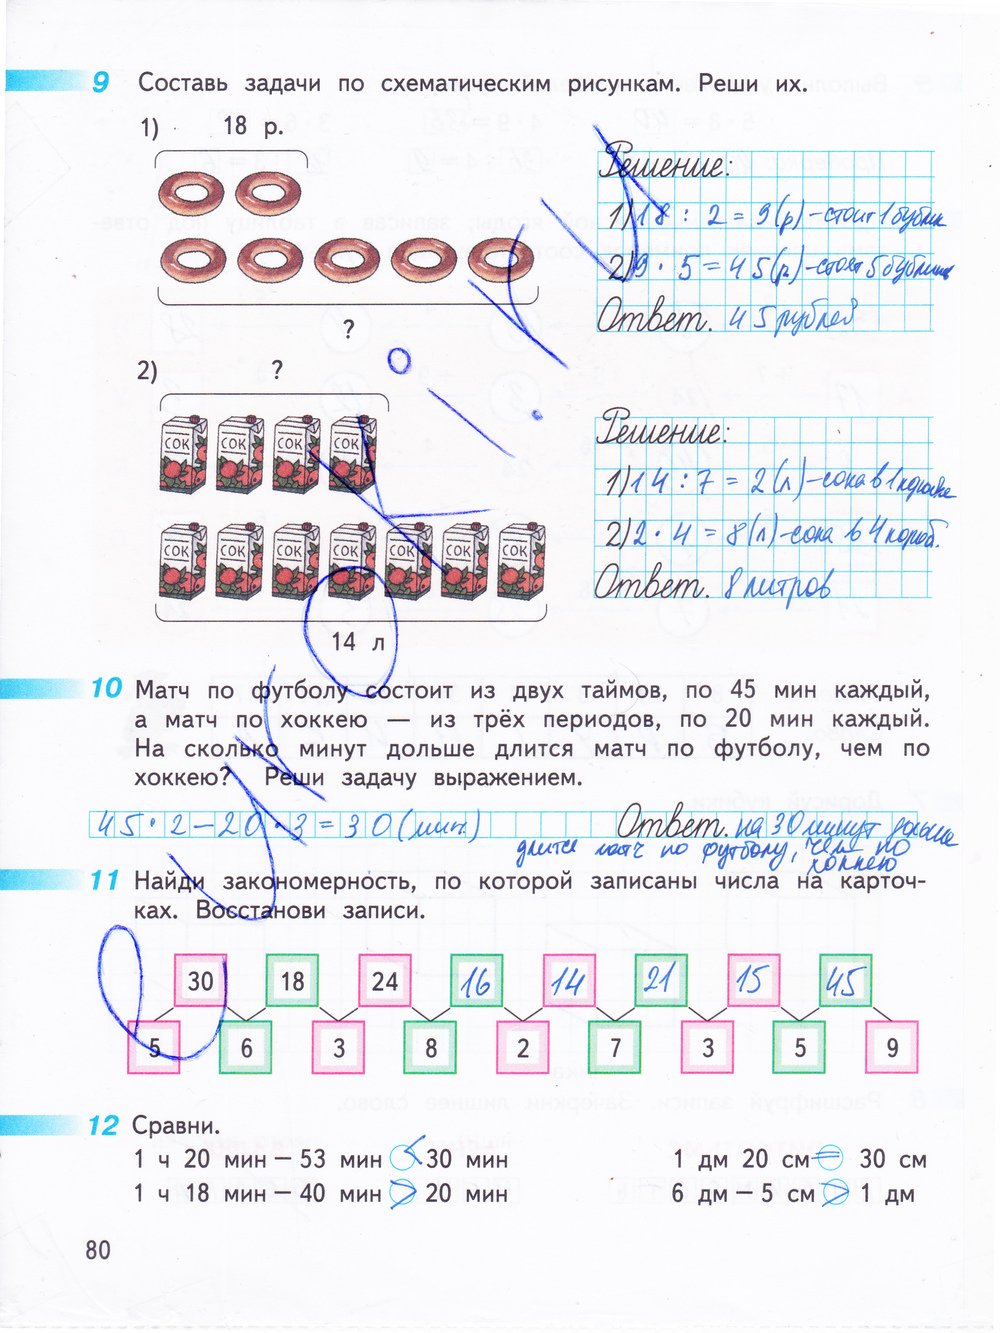 9 Составь задачи по схематическим рисункам. Реши их.
1) 18 р.
?
Решение:
1) 18 : 2 = 9 (р) – стоит 1 бублик
2) 9 · 5 = 45 (р) – стоят 5 бубликов
Ответ. 45 рублей
2) ?
СОК СОК СОК СОК
СОК СОК СОК СОК СОК СОК СОК
14 л
Решение:
1) 14 : 7 = 2 (л) – сока в 1 коробке
2) 2 · 4 = 8 (л) – сока в 4 короб.
Ответ. 8 литров
10 Матч по футболу состоит из двух таймов, по 45 мин каждый,
а матч по хоккею — из трёх периодов, по 20 мин каждый.
На сколько минут дольше длится матч по футболу, чем по
хоккею? Реши задачу выражением.
45 · 2 – 20 · 3 = 30 (мин.) Ответ. на 30 минут дольше
длится матч по футболу, чем по
хоккею
11 Найди закономерность, по которой записаны числа на карточ-
ках. Восстанови записи.
30 18 24 16 14 21 15 45
5 6 3 8 2 7 3 5 9
12 Сравни.
1 ч 20 мин – 53 мин < 30 мин 1 дм 20 см = 30 см
1 ч 18 мин – 40 мин > 20 мин 6 дм – 5 см > 1 дм
80